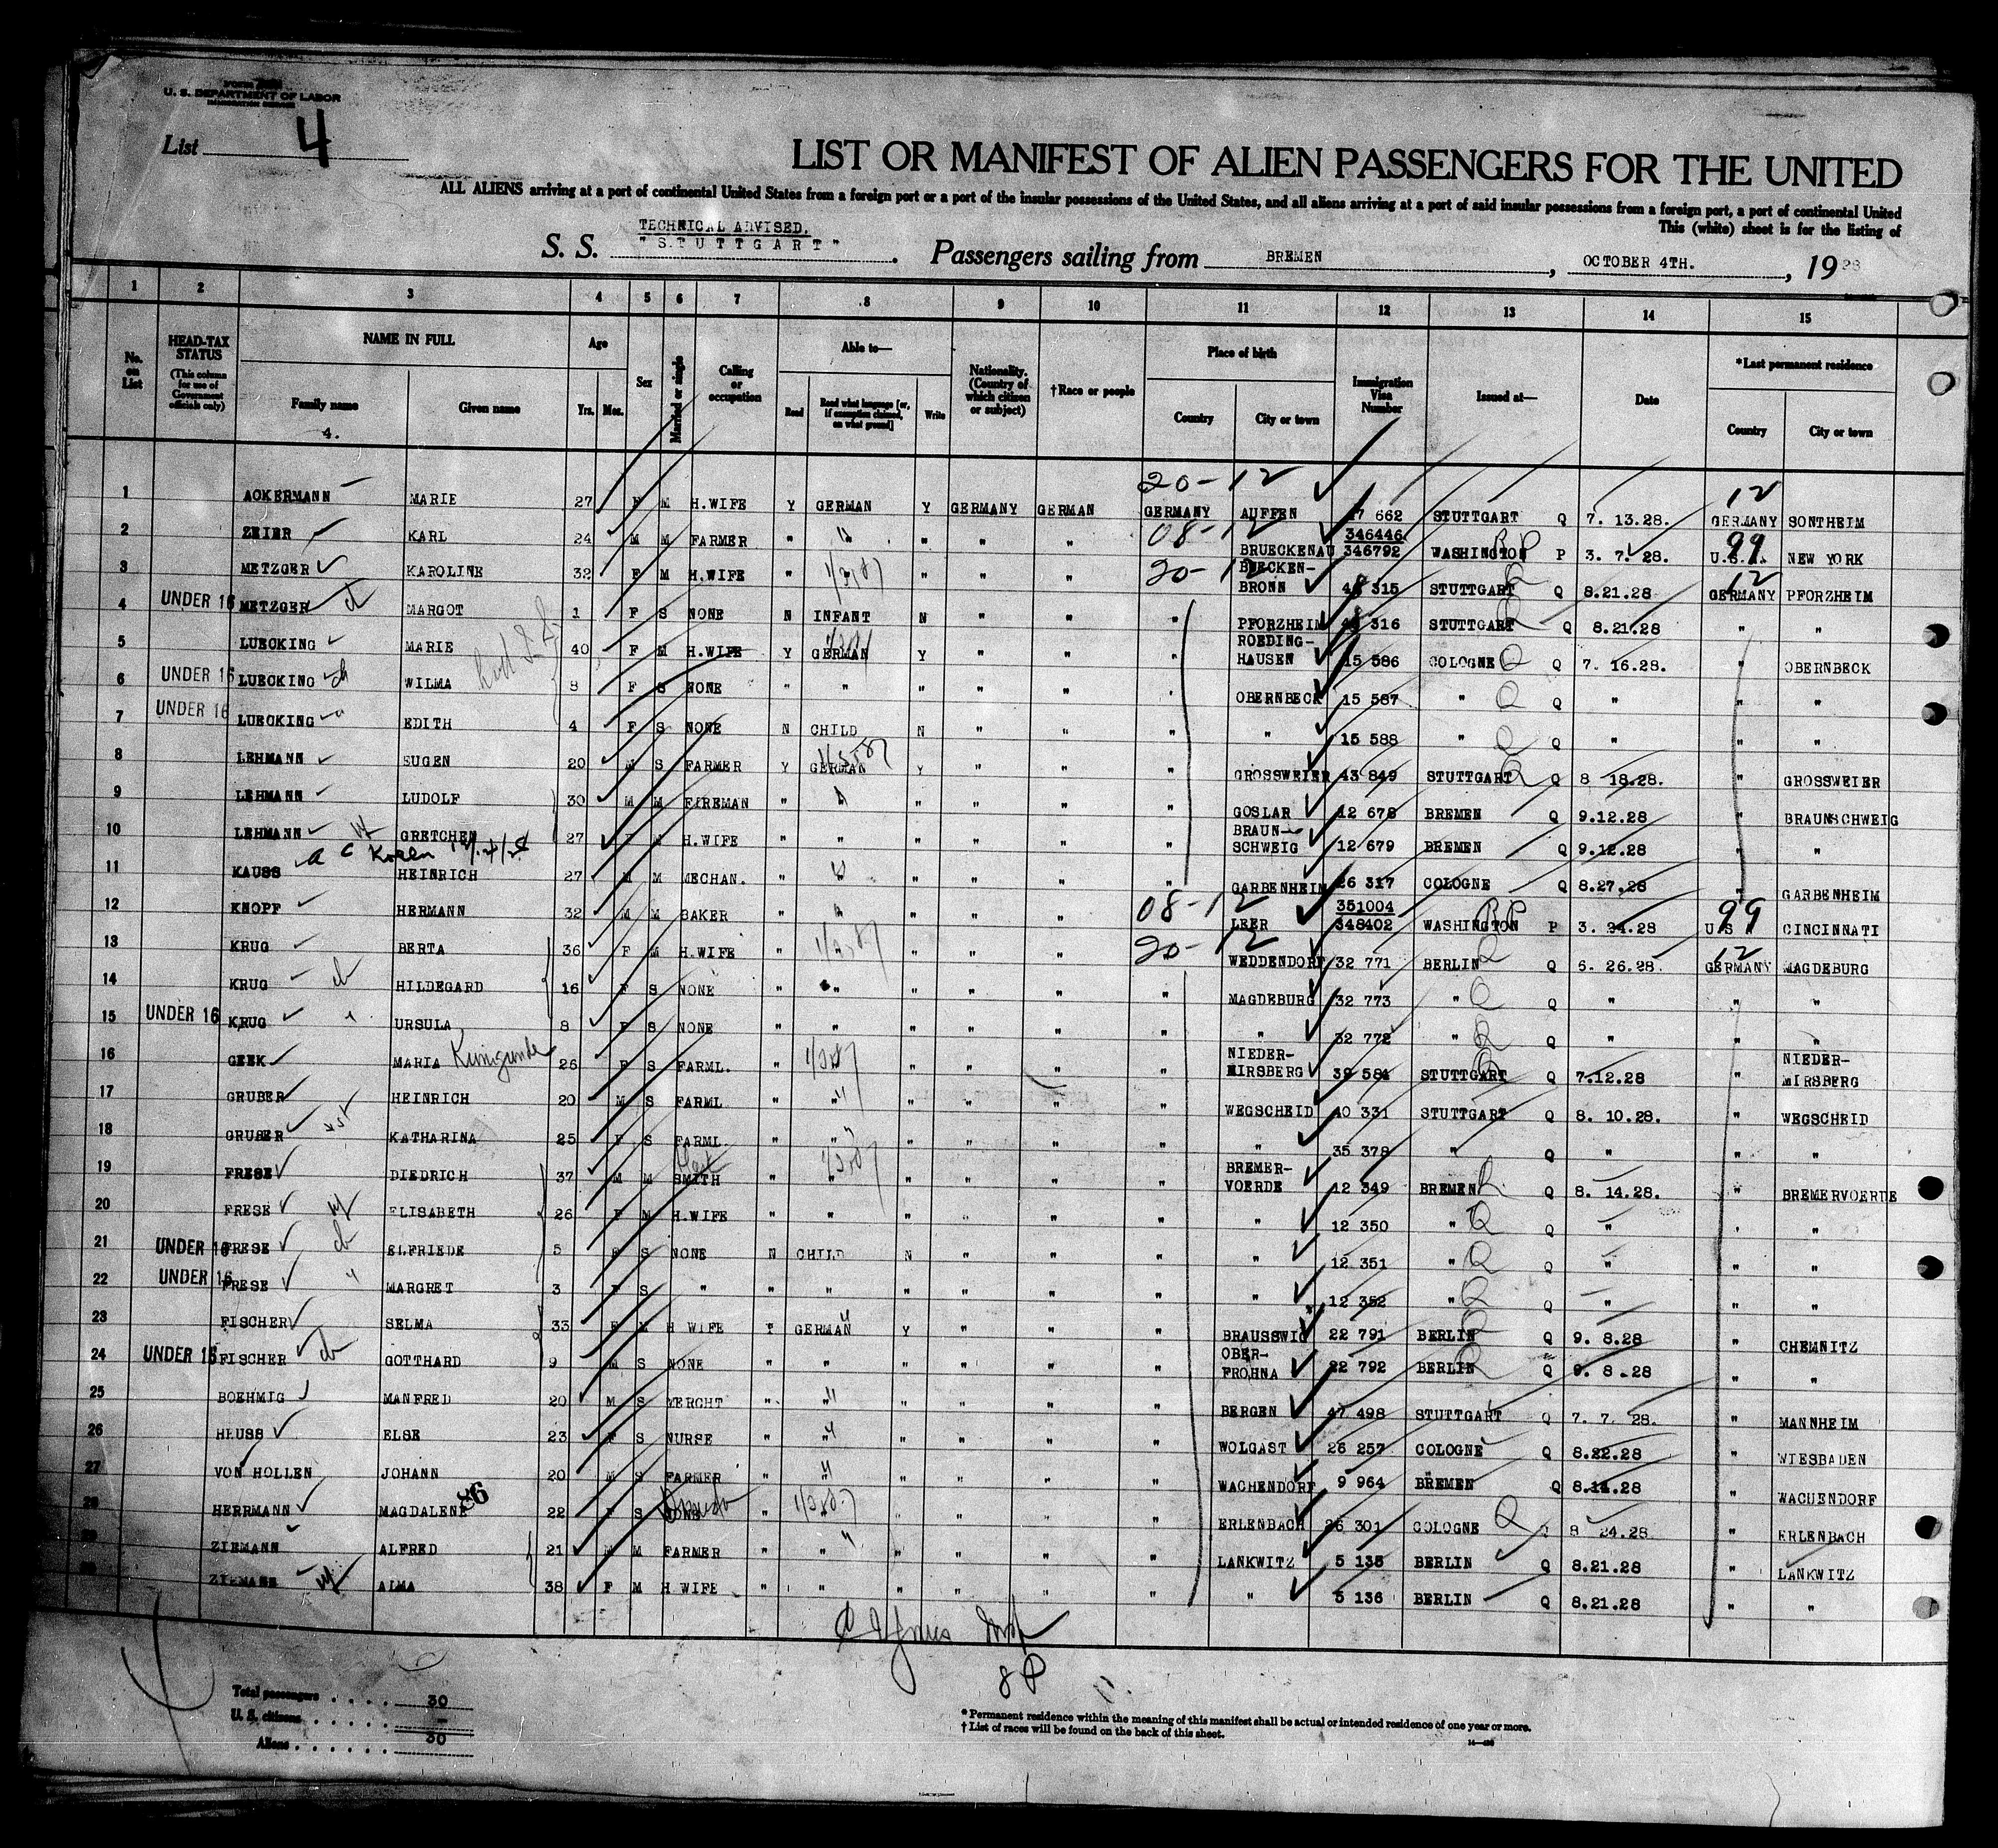 U. S. DEPARTMENT OF LABOR
List 4
LIST OR MANIFEST OF ALIEN PASSENGERS FOR THE UNITED
ALL ALIENS arriving at a port of continental United States from a foreign port or a port of the insular possessions of the United States, and all aliens arriving at a port of said insular possessions from a foreign port, a port of continental United
This (white) sheet is for the listing of
TECHNICAL ADVISED.
S. S. "STUTTGART". Passengers sailing from BREMEN, OCTOBER 4TH., 1928
1 2 3 4 5 6 7 8 9 10 11 12 13 14 15
No. on List
HEAD-TAX STATUS (This column for use of Government officials only)
NAME IN FULL Family name Given name
Age Yrs. Mos.
Sex
Married or single
Calling or occupation
Able to— Read Read what language [or, if exemption claimed, on what ground] Write
Nationality. (Country of which citizen or subject)
†Race or people
Place of birth Country City or town
Immigration Visa Number
Issued at—
Date
*Last permanent residence Country City or town
4.
20-12 12
1 ACKERMANN MARIE 27 F M H.WIFE Y GERMAN Y GERMANY GERMAN GERMANY AUFFEN 47 662 STUTTGART Q 7. 13.28. GERMANY SONTHEIM
08-12 346446 99
2 ZEIER KARL 24 M M FARMER " " " " " BRUECKENAU 346792 WASHINGTON P 3. 7. 28. U.S.A. NEW YORK
20-12 BUECKEN- 12
3 METZGER KAROLINE 32 F M H.WIFE " " " " BRONN 48 315 STUTTGART Q 8.21.28 GERMANY PFORZHEIM
4 UNDER 16 METZGER ch MARGOT 1 F S NONE N INFANT N " " " PFORZHEIM 48 316 STUTTGART Q 8.21.28 " "
ROEDING-
5 LUECKING MARIE 40 F M H.WIFE Y GERMAN Y " " " HAUSEN 15 586 COLOGNE Q 7. 16.28. " OBERNBECK
6 UNDER 16 LUECKING ch WILMA 8 F S NONE " " " " " " OBERNBECK 15 587 " Q " " "
7 UNDER 16 LUECKING " EDITH 4 F S NONE N CHILD N " " " " 15 588 " Q " " "
8 LEHMANN EUGEN 20 M S FARMER Y GERMAN Y " " " GROSSWEIER 43 849 STUTTGART Q 8 18.28. " GROSSWEIER
9 LEHMANN LUDOLF 30 M M FIREMAN " " " " " GOSLAR 12 678 BREMEN Q 9.12.28 " BRAUNSCHWEIG
BRAUN-
10 LEHMANN wf GRETCHEN 27 F M H.WIFE " " " " " " SCHWEIG 12 679 BREMEN Q 9.12.28 " "
11 KAUSS HEINRICH 27 M M MECHAN. " " " " " " GARBENHEIM 26 317 COLOGNE Q 8.27.28 " GARBENHEIM
08-12 351004 99
12 KNOPF HERMANN 32 M M BAKER " " " " LEER 348402 WASHINGTON P 3. 24.28 U.S. CINCINNATI
20-12 12
13 KRUG BERTA 36 F M H.WIFE " " " " WEDDENDORF 32 771 BERLIN Q 6. 26.28. GERMANY MAGDEBURG
14 KRUG ch HILDEGARD 16 F S NONE " " " " " " MAGDEBURG 32 773 " Q " " "
15 UNDER 16 KRUG " URSULA 8 F S NONE " " " " " " " 32 772 " Q " " "
NIEDER- NIEDER-
16 GEEK MARIA Kunigunde 26 F S FARML. " " " " " MIRSBERG 39 584 STUTTGART Q 7.12.28 " MIRSBERG
17 GRUBER HEINRICH 20 M S FARML " " " " " " WEGSCHEID 40 331 STUTTGART Q 8. 10.28. " WEGSCHEID
18 GRUBER KATHARINA 25 F S FARML. " " " " " " " 35 378 " Q " " "
BREMER-
19 FRESE DIEDRICH 37 M M SMITH " " " " " " VOERDE 12 349 BREMEN Q 8. 14.28. " BREMERVOERDE
20 FRESE wf ELISABETH 26 F M H.WIFE " " " " " " " 12 350 " Q " " "
21 UNDER 16 FRESE ch ELFRIEDE 5 F S NONE N CHILD N " " " " 12 351 " Q " " "
22 UNDER 16 FRESE " MARGRET 3 F S " " " " " " " " 12 352 " Q " " "
23 FISCHER SELMA 33 F M H WIFE Y GERMAN Y " " " BRAUSSWIG 22 791 BERLIN Q 9. 8.28 " CHEMNITZ
OBER-
24 UNDER 16 FISCHER ch GOTTHARD 9 M S NONE " " " " " " FROHNA 22 792 BERLIN Q 9. 8.28 " "
25 BOEHMIG MANFRED 20 M S MERCHT " " " " " " BERGEN 47 498 STUTTGART Q 7. 7. 28. " MANNHEIM
26 HEUSS ELSE 23 F S NURSE " " " " " " WOLGAST 26 257 COLOGNE Q 8.22.28 " WIESBADEN
27 VON HOLLEN JOHANN 20 M S FARMER " " " " " " WACHENDORF 9 964 BREMEN Q 8.14.28 " WACHENDORF
28 HERRMANN MAGDALENE 86 22 F S NONE " " " " " ERLENBACH 26 301 COLOGNE Q 8 24.28 " ERLENBACH
29 ZIEMANN ALFRED 21 M M FARMER " " " " " " LANKWITZ 5 135 BERLIN Q 8.21.28 " LANKWITZ
30 ZIEMANN wf ALMA 38 F M H WIFE " " " " " " " 5 136 BERLIN Q 8.21.28 " "
Total passengers . . . . 30
U. S. citizens . . . . . –
Aliens . . . . . . 30
* Permanent residence within the meaning of this manifest shall be actual or intended residence of one year or more.
† List of races will be found on the back of this sheet.